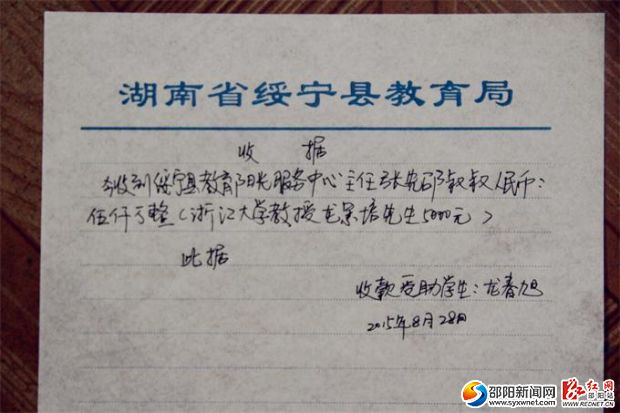 湖南省绥宁县教育局
收 据
今收到绥宁县教育阳光服务中心主任张先邵叔叔人民币:
伍仟亏整(浙江大学教授龙景培先生5000元)
此据
收款受助学生:龙春旭
2015年8月28日
邵阳新闻网
www.syxwnet.com
红网
邵阳站
WWW.REDNET.CN